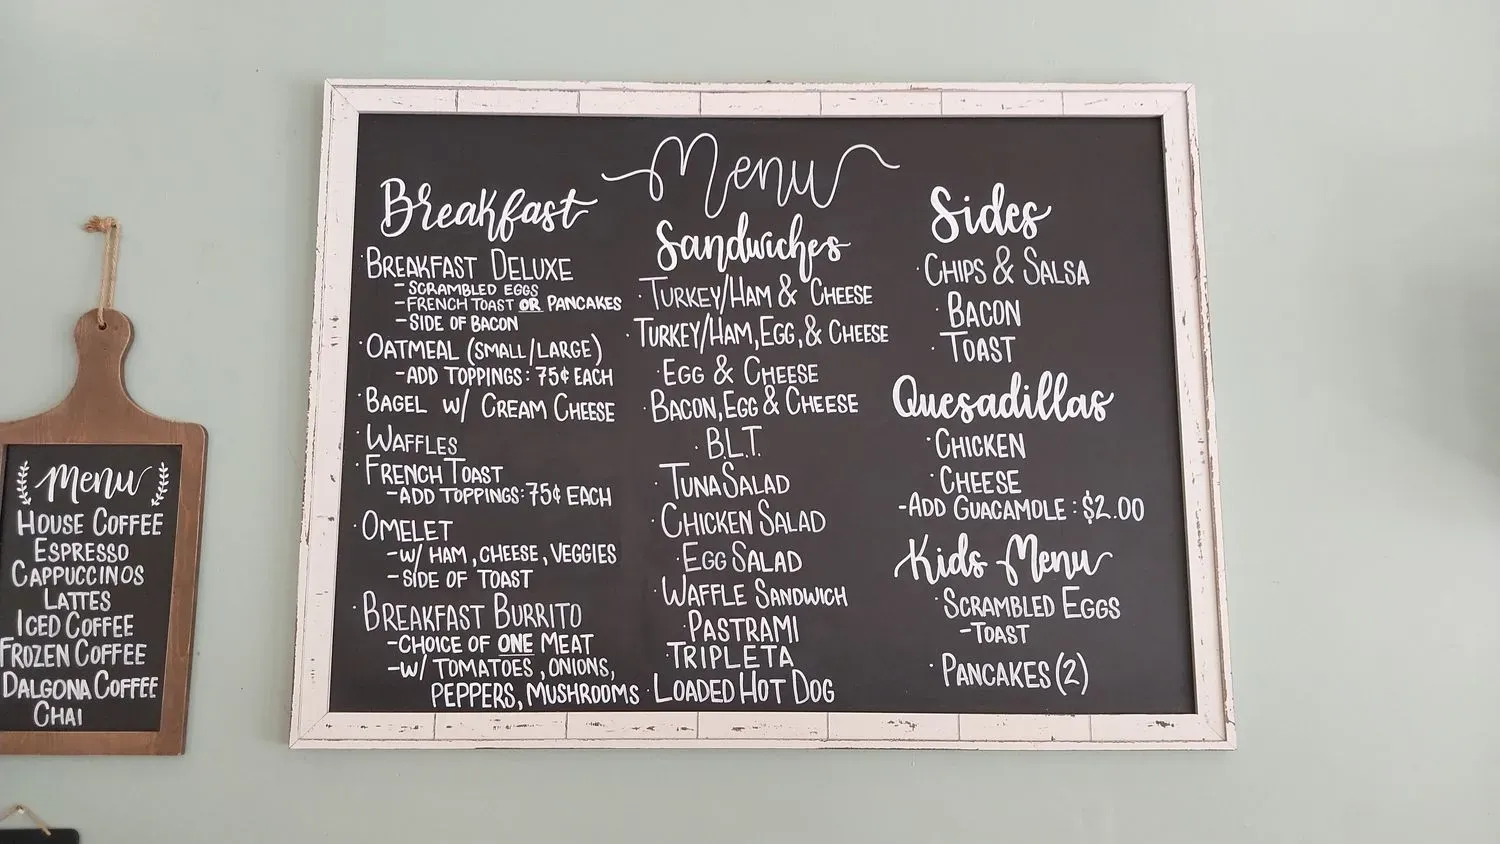 Menu
Breakfast
·BREAKFAST DELUXE
-SCRAMBLED EGGS
-FRENCH TOAST OR PANCAKES
-SIDE OF BACON
·OATMEAL (SMALL/LARGE)
-ADD TOPPINGS: 75¢ EACH
·BAGEL W/ CREAM CHEESE
·WAFFLES
·FRENCH TOAST
-ADD TOPPINGS: 75¢ EACH
·OMELET
-W/ HAM, CHEESE, VEGGIES
-SIDE OF TOAST
·BREAKFAST BURRITO
-CHOICE OF ONE MEAT
-W/ TOMATOES, ONIONS,
PEPPERS, MUSHROOMS
Sandwiches
·TURKEY/HAM & CHEESE
·TURKEY/HAM, EGG, & CHEESE
·EGG & CHEESE
·BACON, EGG & CHEESE
·B.L.T.
·TUNA SALAD
·CHICKEN SALAD
·EGG SALAD
·WAFFLE SANDWICH
·PASTRAMI
·TRIPLETA
·LOADED HOT DOG
Sides
·CHIPS & SALSA
·BACON
·TOAST
Quesadillas
·CHICKEN
·CHEESE
-ADD GUACAMOLE: $2.00
Kids Menu
·SCRAMBLED EGGS
-TOAST
·PANCAKES (2)
Menu
HOUSE COFFEE
ESPRESSO
CAPPUCCINOS
LATTES
ICED COFFEE
FROZEN COFFEE
DALGONA COFFEE
CHAI